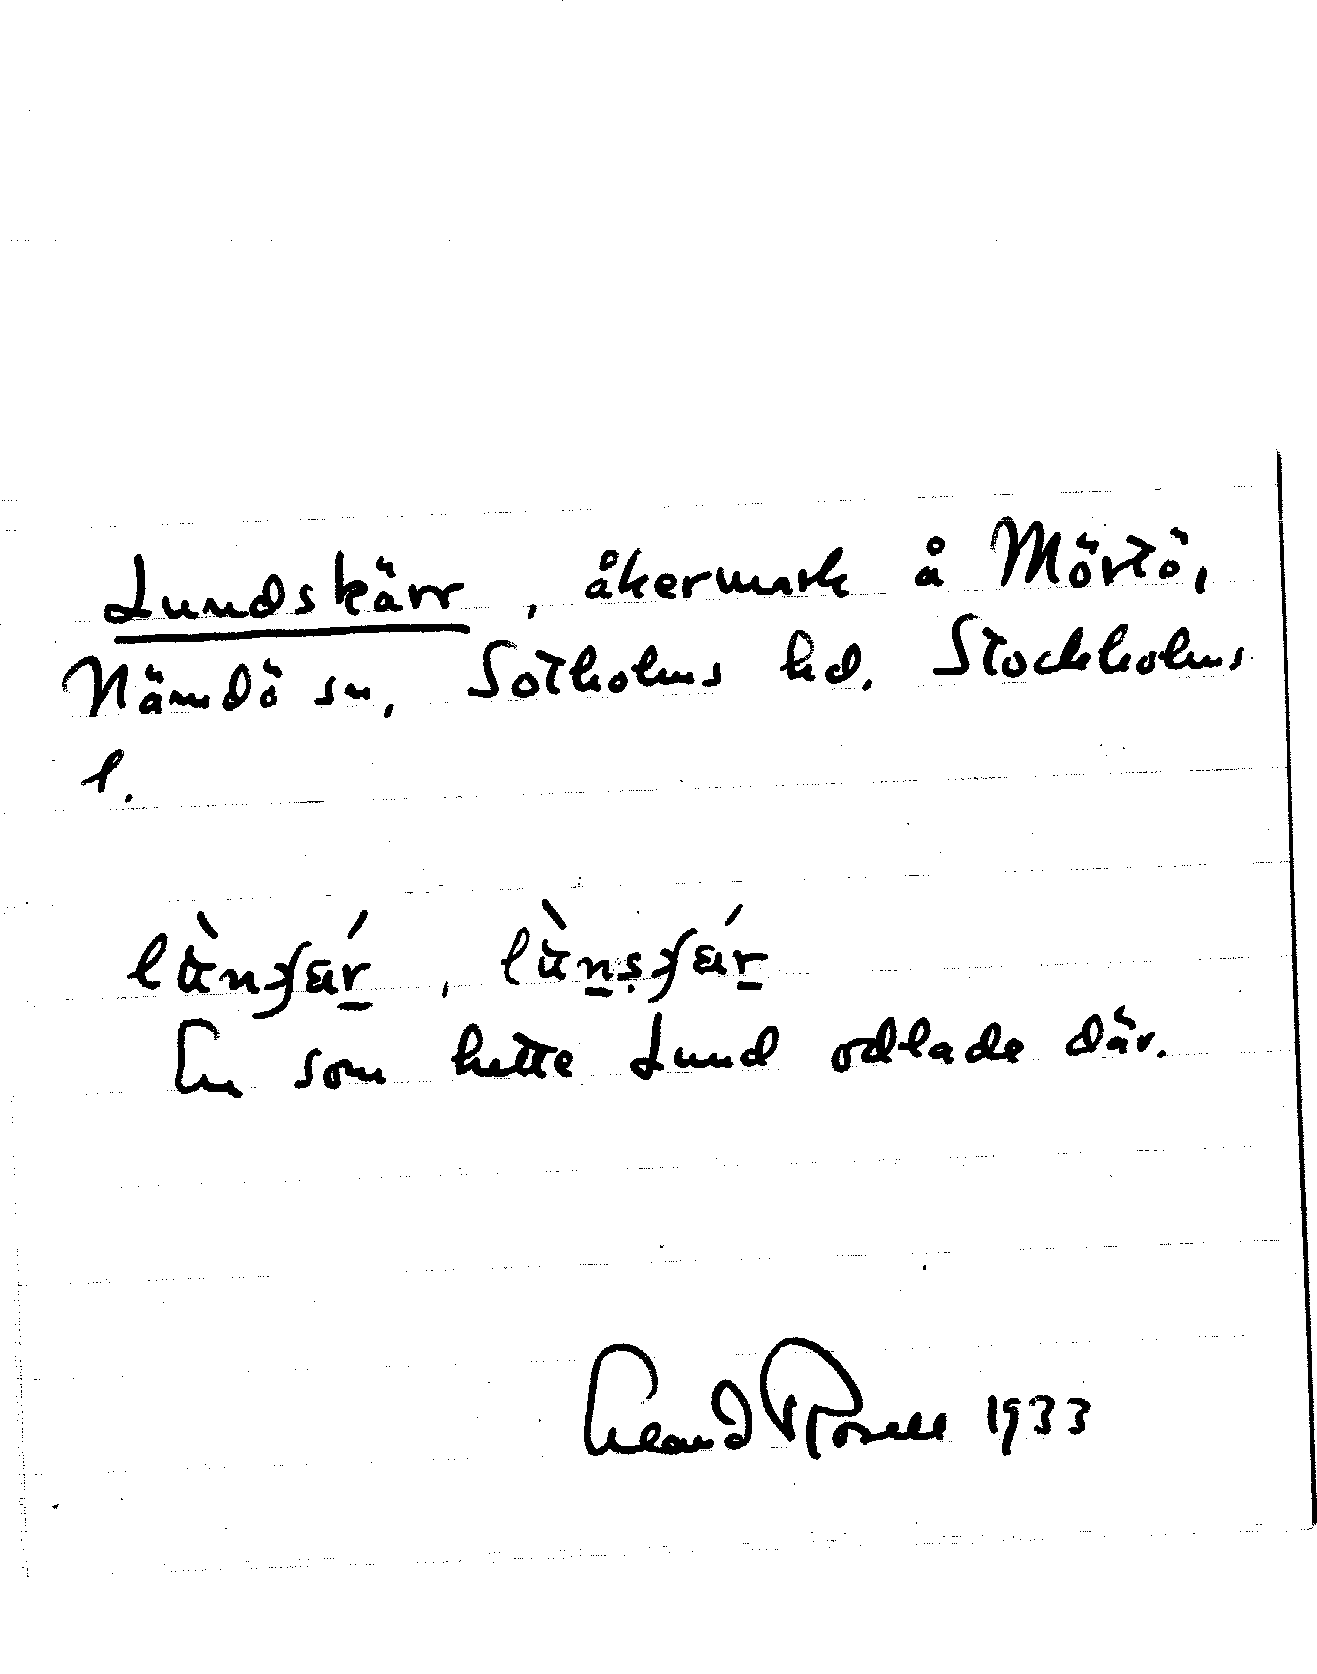 Lundskärr, åkermark å Mörtö,
Nämdö sn, Sotholms hd. Stockholms
l.
En som hette Lund odlade där.
Erland Rosell 1933